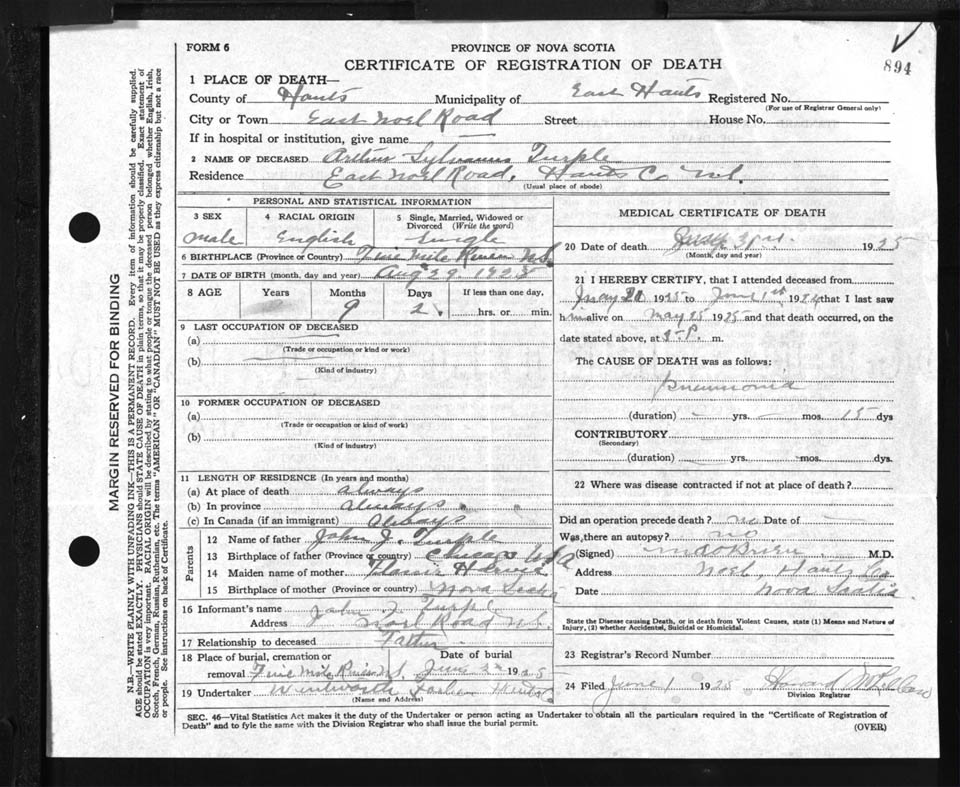 894
FORM 6
PROVINCE OF NOVA SCOTIA
CERTIFICATE OF REGISTRATION OF DEATH
1 PLACE OF DEATH—
County of Hants Municipality of East Hants Registered No.
(For use of Registrar General only)
City or Town East Noel Road Street House No.
If in hospital or institution, give name —
2 NAME OF DECEASED Arthur Sylvanus Turple
Residence East Noel Road, Hants Co N.S.
(Usual place of abode)
PERSONAL AND STATISTICAL INFORMATION
3 SEX 4 RACIAL ORIGIN 5 Single, Married, Widowed or Divorced (Write the word)
male English Single
6 BIRTHPLACE (Province or Country) Five Mile River N.S.
7 DATE OF BIRTH (month, day and year) Aug 29
8 AGE Years Months Days If less than one day,
9 2 hrs. or min.
9 LAST OCCUPATION OF DECEASED
(a)
(Trade or occupation or kind or work)
(b)
(Kind of industry)
10 FORMER OCCUPATION OF DECEASED
(a)
(Trade or occupation or kind of work)
(b)
(Kind of industry)
11 LENGTH OF RESIDENCE (In years and months)
(a) At place of death always
(b) In province always
(c) In Canada (if an immigrant) Always
Parents
12 Name of father John J. Turple
13 Birthplace of father (Province or country) Chicago USA
14 Maiden name of mother
15 Birthplace of mother (Province or country) Nova Scotia
16 Informant's name John J. Turple
Address Noel Road N.S.
17 Relationship to deceased Father
18 Place of burial, cremation or Date of burial
removal Five Mile River N.S. June 1925
19 Undertaker Wentworth
(Name and Address)
MEDICAL CERTIFICATE OF DEATH
20 Date of death 1925
(Month, day and year)
21 I HEREBY CERTIFY, that I attended deceased from
1925 to June 1st that I last saw
him alive on May 25 1925 and that death occurred, on the
date stated above, at P. m.
The CAUSE OF DEATH was as follows:
pneumonia
(duration) yrs. mos. 15 dys
CONTRIBUTORY
(Secondary)
(duration) yrs. mos. dys.
22 Where was disease contracted if not at place of death?
Did an operation precede death? no Date of
Was there an autopsy? no
(Signed) M.D.
Address Noel Hants Co
Date Nova Scotia
State the Disease causing Death, or in death from Violent Causes, state (1) Means and Nature of
Injury, (2) whether Accidental, Suicidal or Homicidal.
23 Registrar's Record Number
24 Filed June 1 1925 Howard
Division Registrar
SEC. 46—Vital Statistics Act makes it the duty of the Undertaker or person acting as Undertaker to obtain all the particulars required in the "Certificate of Registration of
Death" and to fyle the same with the Division Registrar who shall issue the burial permit.
(OVER)
MARGIN RESERVED FOR BINDING
N.B.—WRITE PLAINLY WITH UNFADING INK—THIS IS A PERMANENT RECORD. Every item of information should be carefully supplied.
AGE should be stated EXACTLY. PHYSICIANS should STATE CAUSE OF DEATH in plain terms, so that it may be properly classified. Exact statement of
OCCUPATION is very important. RACIAL ORIGIN will be described by stating to what people or tongue the deceased person belonged whether English, Irish,
Scotch, French, German, Russian, Ruthenian, etc. The terms "AMERICAN" OR "CANADIAN" MUST NOT BE USED as they express citizenship but not a race
or people. See instructions on back of Certificate.